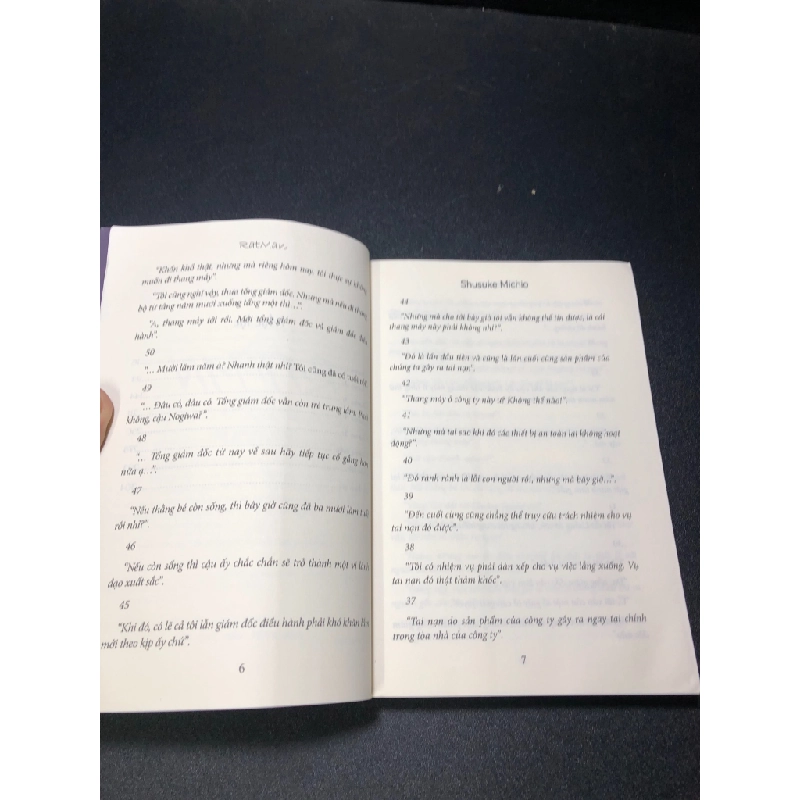 RatMan
"Khốn khổ thật, nhưng mà riêng hôm nay tôi thực sự không
muốn đi thang máy"
"Tôi cũng nghĩ vậy, thưa tổng giám đốc. Nhưng mà nếu đi thang
bộ từ tầng năm mươi xuống tầng một thì...".
"A, thang máy tới rồi. Mời tổng giám đốc và giám đốc điều
hành".
50
"... Mười lăm năm ạ? Nhanh thật nhỉ! Tôi cũng đã có tuổi rồi"
49
"... Đâu có, đâu có. Tổng giám đốc vẫn còn trẻ trung lắm. Phải
không, cậu Nogiwa?".
48
"... Tổng giám đốc từ nay về sau hãy tiếp tục cố gắng hơn
nữa ạ...".
47
"Nếu thằng bé còn sống, thì bây giờ cũng đã ba mươi lăm tuổi
rồi nhỉ?"
46
"Nếu còn sống thì cậu ấy chắc chắn sẽ trở thành một vị lãnh
đạo xuất sắc".
45
"Khi đó, có lẽ cả tôi lẫn giám đốc điều hành phải khó khăn lắm
mới theo kịp ấy chứ".
6
Shusuke Michio
44
"Nhưng mà cho tới bây giờ tôi vẫn không thể tin được, là cái
thang máy này phải không nhỉ?".
43
"Đó là lần đầu tiên và cũng là lần cuối cùng sản phẩm của
chúng ta gây ra tai nạn".
42
"Thang máy ở công ty này ư? Không thể nào!".
41
"Nhưng mà tại sao khi đó các thiết bị an toàn lại không hoạt
động?".
40
"Đó rành rành là lỗi con người rồi, nhưng mà bây giờ...".
39
"Đến cuối cùng cũng chẳng thể truy cứu trách nhiệm cho vụ
tai nạn đó được".
38
"Tôi có nhiệm vụ phải dàn xếp cho vụ việc lắng xuống. Vụ
tai nạn đó thật thảm khốc".
37
"Tai nạn do sản phẩm của công ty gây ra ngay tại chính
trong tòa nhà của công ty"
7